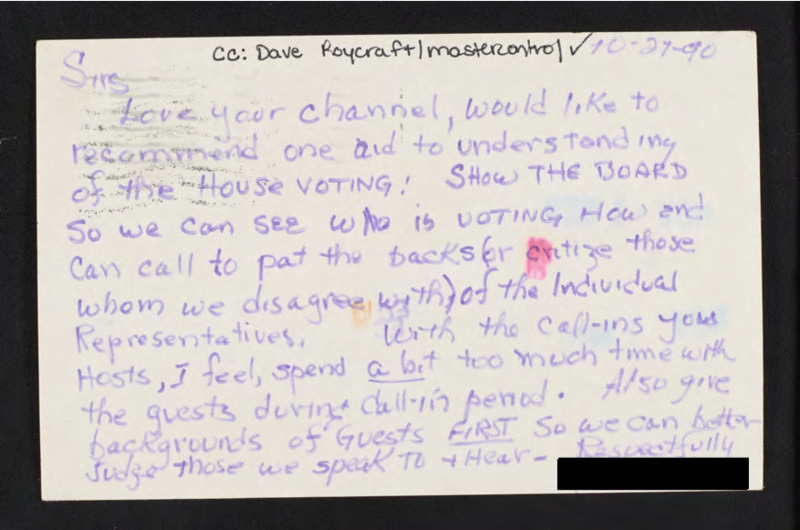 cc: Dave Roycraft/mastercontrol ✓ 10-29-90
Sirs
Love your channel, would like to
recommend one aid to understanding
of the House VOTING! SHOW THE BOARD
So we can SEE who is VOTING HOW and
Can call to pat the backs (or critize those
whom we disagree with) of the Individual
Representatives. With the call-ins your
Hosts, I feel, spend a bit too much time with
the guests during Call-in period. Also give
backgrounds of Guests FIRST So we can better
Judge those we speak To + Hear - Respectfully